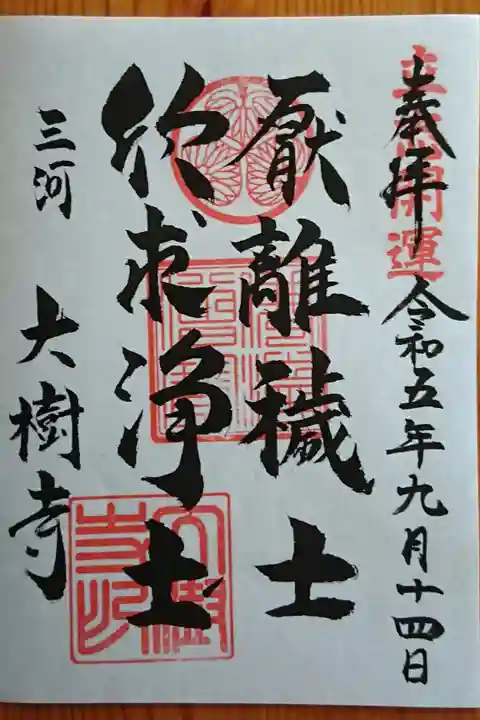 奉拝 令和五年九月十四日
開運
厭離穢土
欣求浄土
三河 大樹寺